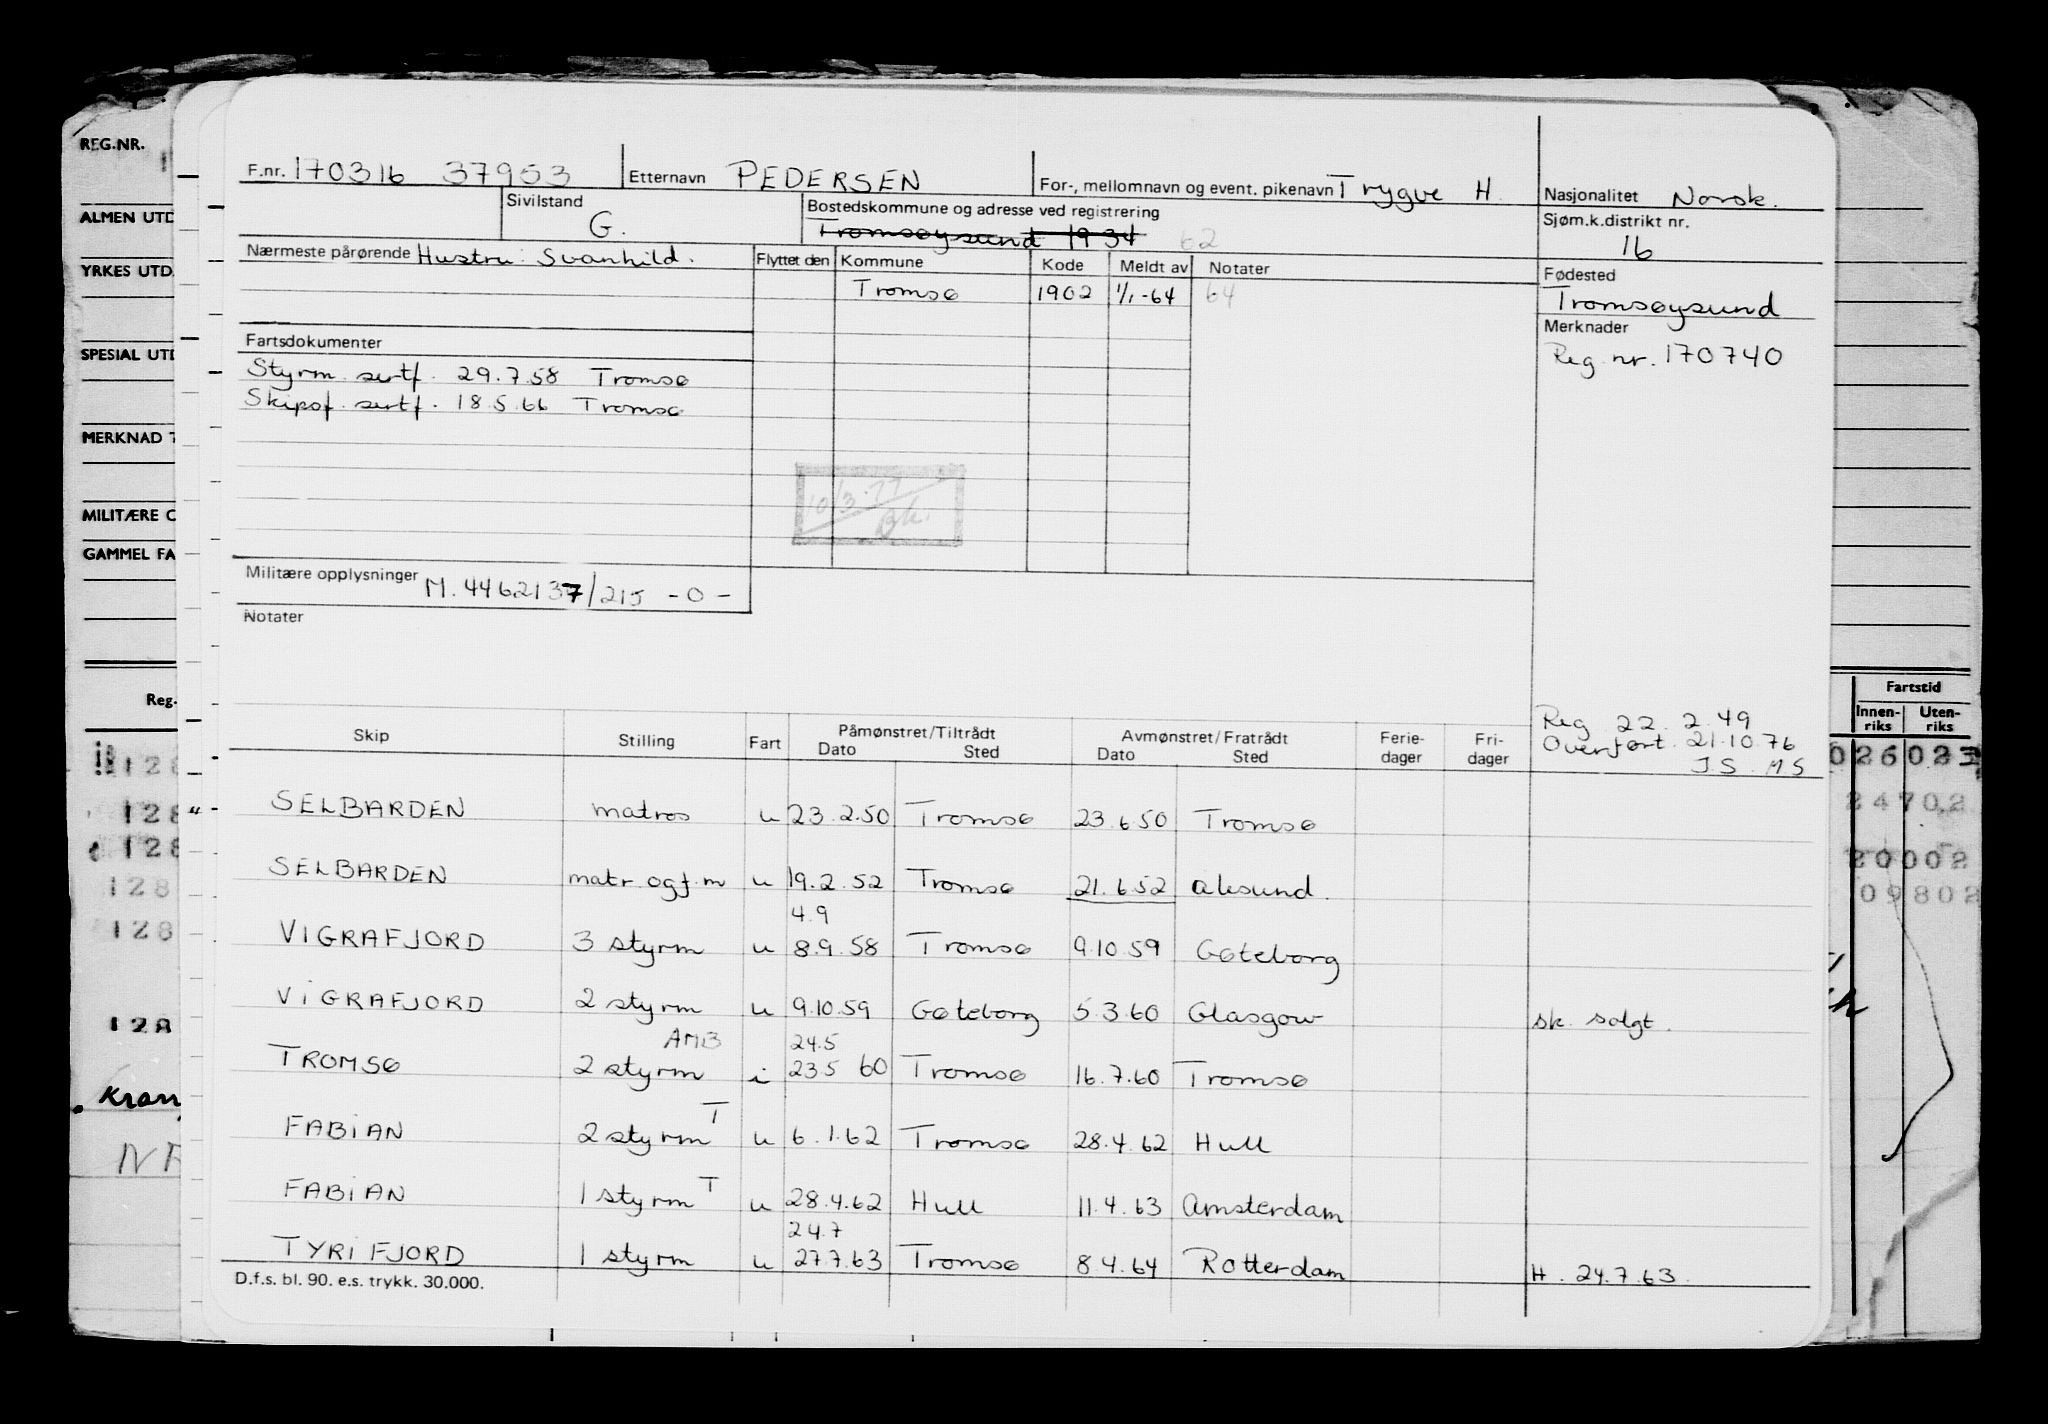 REG.NR.
ALMEN UTD
YRKES UTD.
SPESIAL UTD
MERKNAD T
MILITÆRE O
GAMMEL FA
Reg.
F.nr. 170316 37953 Etternavn PEDERSEN For-, mellomnavn og event. pikenavn Trygve H. Nasjonalitet Norsk.
Sivilstand G. Bostedskommune og adresse ved registrering Tromsøysund 1934 62 Sjøm.k.distrikt nr. 16
Nærmeste pårørende Hustru: Svanhild. Flyttet den Kommune Kode Meldt av Notater Fødested
Tromsø 1902 1/1-64 64 Tromsøysund
Fartsdokumenter Merknader
Styrm. sertf. 29.7.58 Tromsø Reg. nr. 170740
Skipsf. sertf. 18.5.66 Tromsø
10/3-77
Bk.
Militære opplysninger M. 4462137/215 -0-
Notater
Reg 22.2.49
Overført. 21.10.76
J.S. MS
Skip Stilling Fart Påmønstret/Tiltrådt Avmønstret/Fratrådt Ferie-dager Fri-dager
Dato Sted Dato Sted
SELBARDEN matros u 23.2.50 Tromsø 23.6.50 Tromsø
SELBARDEN matr. og f.m u 19.2.52 Tromsø 21.6.52 Ålesund.
4.9
VIGRAFJORD 3 styrm u 8.9.58 Tromsø 9.10.59 Gøteborg
VIGRAFJORD 2 styrm u 9.10.59 Gøteborg 5.3.60 Glasgow sk. solgt.
AMB 24.5
TROMSØ 2 styrm i 23.5 60 Tromsø 16.7.60 Tromsø
FABIAN 2 styrm T u 6.1.62 Tromsø 28.4.62 Hull
FABIAN 1 styrm T u 28.4.62 Hull 11.4.63 Amsterdam
24.7
TYRIFJORD 1 styrm u 27.7.63 Tromsø 8.4.64 Rotterdam H. 24.7.63.
D.f.s. bl. 90. e.s. trykk. 30.000.
Fartstid
Innen-riks Uten-riks
128
128
128
128
128
128
02602
24702
20002
09802